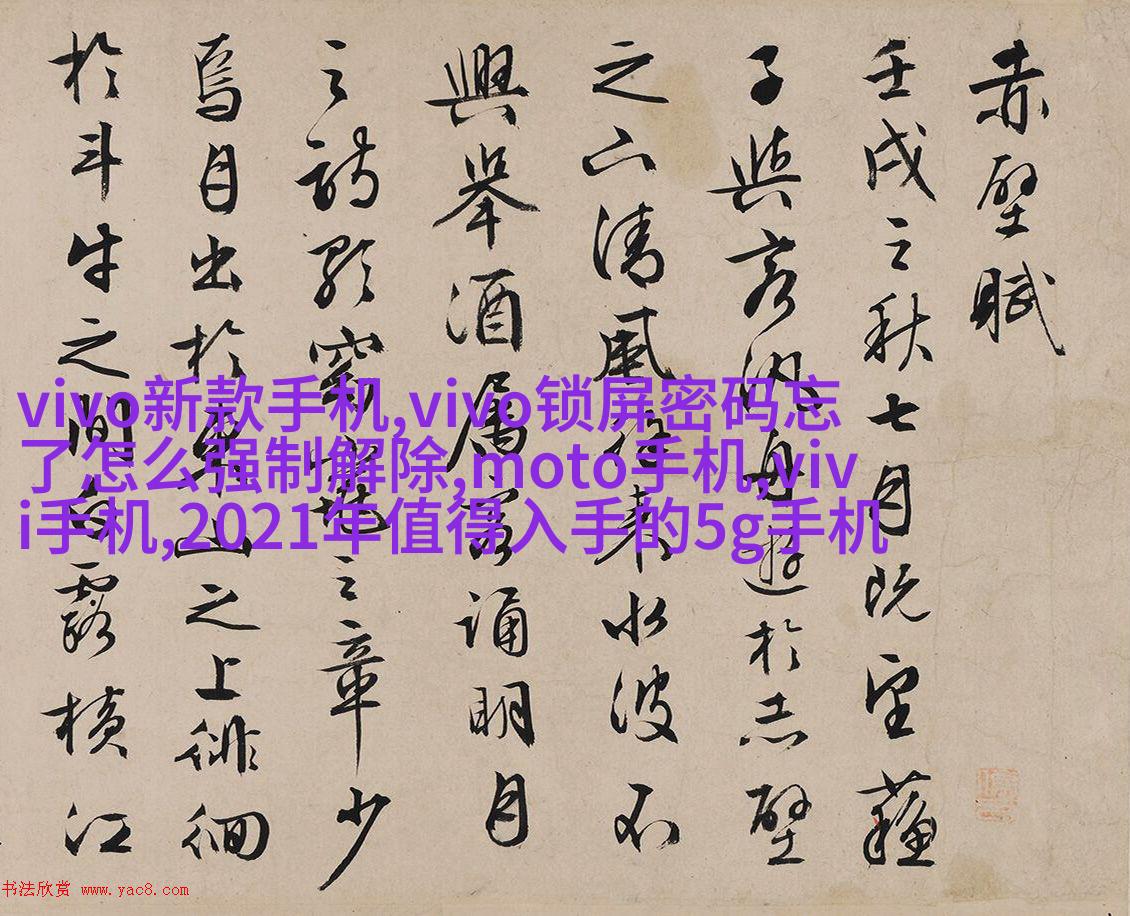 赤壁賦
壬戌之秋七月既望蘇
子與客汎舟遊於赤壁
之下清風徐來水波不
興舉酒屬客誦明月
之詩歌窈窕之章少
焉月出於東山之上徘徊
於斗牛之間白露橫江
vivo新款手机,vivo锁屏密码忘
了怎么强制解除,moto手机,viv
i手机,2021年值得入手的5g手机
书法欣赏 www.yac8.com